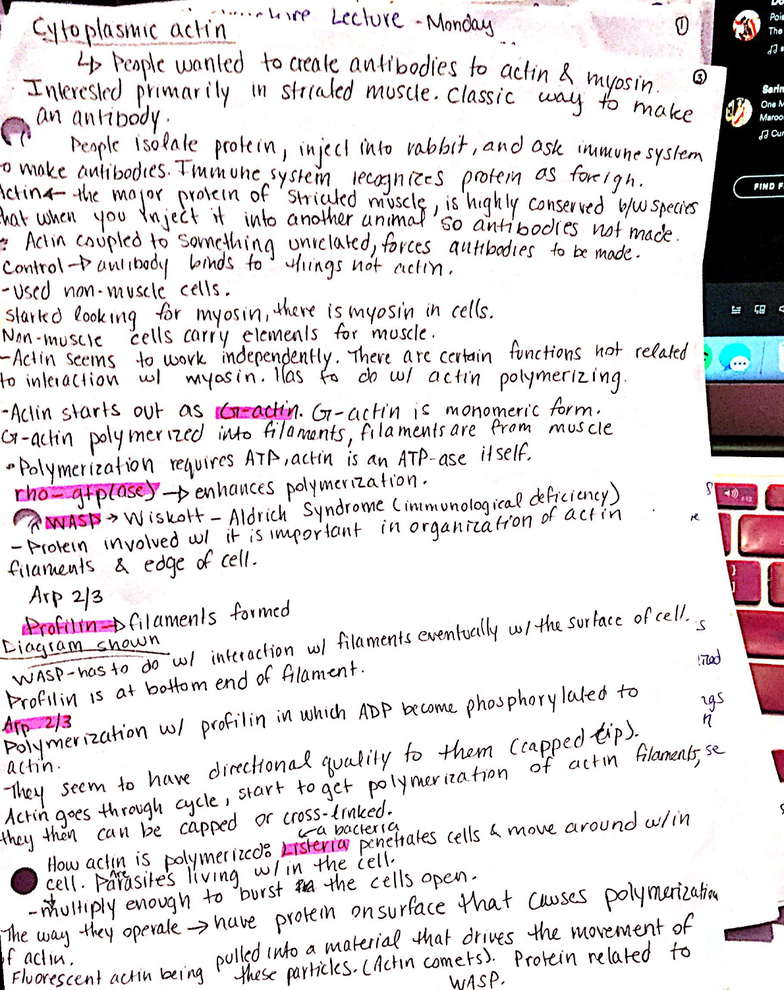 Lecture - Monday
①
Cytoplasmic actin
③
↳ People wanted to create antibodies to actin & myosin.
Interested primarily in striated muscle. Classic way to make
an antibody.
People isolate protein, inject into rabbit, and ask immune system
to make antibodies. Immune system recognizes protein as foreign.
Actin ← the major protein of striated muscle, is highly conserved b/w species
that when you inject it into another animal so antibodies not made.
Actin coupled to something unrelated, forces antibodies to be made.
Control → antibody binds to things not actin.
- Used non-muscle cells.
Started looking for myosin, there is myosin in cells.
Non-muscle cells carry elements for muscle.
- Actin seems to work independently. There are certain functions not related
to interaction w/ myosin. Has to do w/ actin polymerizing.
- Actin starts out as G-actin. G-actin is monomeric form.
G-actin polymerized into filaments, filaments are from muscle
• Polymerization requires ATP, actin is an ATP-ase itself.
rho-gtp(ase) → enhances polymerization.
WASP → Wiskott-Aldrich Syndrome (immunological deficiency)
- Protein involved w/ it is important in organization of actin
filaments & edge of cell.
Arp 2/3
Profilin → filaments formed
Diagram shown
WASP-has to do w/ interaction w/ filaments eventually w/ the surface of cell.
Profilin is at bottom end of filament.
Arp 2/3
Polymerization w/ profilin in which ADP become phosphorylated to
actin.
They seem to have directional quality to them (capped tip).
Actin goes through cycle, start to get polymerization of actin filaments, se
they then can be capped or cross-linked.
↙ a bacteria
How actin is polymerized: Listeria penetrates cells & move around w/in
cell. Are Parasites living w/in the cell.
- multiply enough to burst the cells open.
The way they operate → have protein on surface that causes polymerization
of actin.
Fluorescent actin being pulled into a material that drives the movement of
these particles. (Actin comets). Protein related to
WASP.
One M
Maroo
FIND F